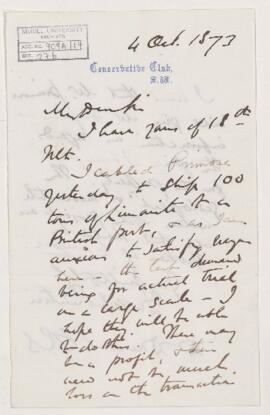 McGILL UNIVERSITY
ARCHIVES
ACC. NO. 909A/14
REF. 27b
4 Oct. 1873
Conservative Club,
S.W.
My Dear
I have yours of 18th
Ult.
I cabled Primrose
yesterday to ship 100
tons of Limonite to a
British port, & as I am
anxious to satisfy buyers
here the demand
being for actual trial
on a large scale – I
hope they will be able
to do this. There may
be a profit, & there
need not be much
loss on the transaction.